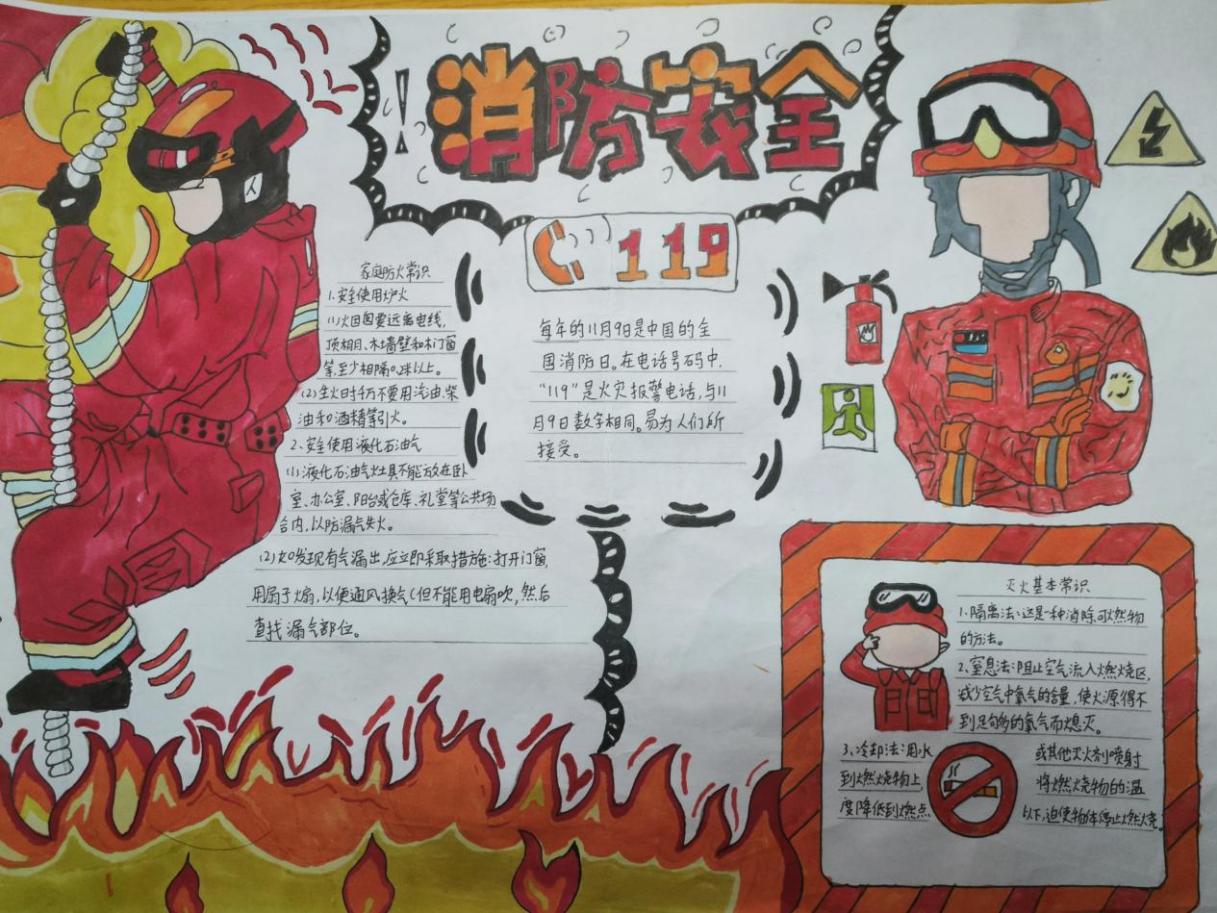 消防安全
119
家庭防火常识
1.安全使用炉火
(1)火囱要远离电线,
顶棚、木墙壁和木门窗
等,至少相隔0.2米以上。
(2)生火时千万不要用汽油、柴
油和酒精等引火。
2、安全使用液化石油气
(1)液化石油气灶具不能放在卧
室、办公室、阳台或仓库、礼堂等公共场
合内,以防漏气失火。
(2)如发现有气漏出,应立即采取措施:打开门窗,
用扇子煽,以便通风换气(但不能用电扇吹,然后
查找漏气部位。
每年的11月9日是中国的全
国消防日。在电话号码中,
“119”是火灾报警电话,与11
月9日数字相同。易为人们所
接受。
灭火基本常识
1.隔离法:这是一种消除可燃物
的方法。
2、窒息法:阻止空气流入燃烧区,
减少空气中氧气的含量,使火源得不
到足够多的氧气而熄灭。
3、冷却法:用水 或其他灭火剂喷射
到燃烧物上, 将燃烧物的温
度降低到燃点 以下,迫使物体停止燃烧。